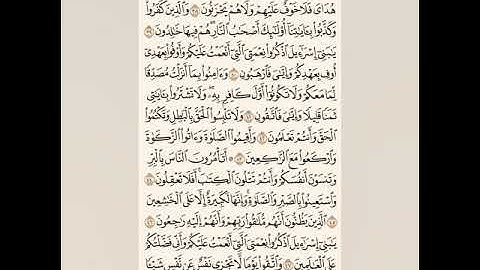 هُدَايَ فَلَا خَوْفٌ عَلَيْهِمْ وَلَا هُمْ يَحْزَنُونَ ٣٨ وَالَّذِينَ كَفَرُوا
وَكَذَّبُوا بِآيَاتِنَا أُولَٰئِكَ أَصْحَابُ النَّارِ هُمْ فِيهَا خَالِدُونَ ٣٩
يَٰبَنِي إِسْرَٰٓءِيلَ اذْكُرُوا نِعْمَتِيَ الَّتِي أَنْعَمْتُ عَلَيْكُمْ وَأَوْفُوا بِعَهْدِي
أُوفِ بِعَهْدِكُمْ وَإِيَّٰيَ فَارْهَبُونِ ٤٠ وَءَامِنُوا بِمَا أَنزَلْتُ مُصَدِّقًا
لِّمَا مَعَكُمْ وَلَا تَكُونُوا أَوَّلَ كَافِرٍ بِهِ وَلَا تَشْتَرُوا بِـَٔايَٰتِي
ثَمَنًا قَلِيلًا وَإِيَّٰيَ فَاتَّقُونِ ٤١ وَلَا تَلْبِسُوا الْحَقَّ بِالْبَٰطِلِ وَتَكْتُمُوا
الْحَقَّ وَأَنتُمْ تَعْلَمُونَ ٤٢ وَأَقِيمُوا الصَّلَوٰةَ وَءَاتُوا الزَّكَوٰةَ
وَارْكَعُوا مَعَ الرَّٰكِعِينَ ٤٣ أَتَأْمُرُونَ النَّاسَ بِالْبِرِّ
وَتَنسَوْنَ أَنفُسَكُمْ وَأَنتُمْ تَتْلُونَ الْكِتَٰبَ أَفَلَا تَعْقِلُونَ ٤٤
وَاسْتَعِينُوا بِالصَّبْرِ وَالصَّلَوٰةِ وَإِنَّهَا لَكَبِيرَةٌ إِلَّا عَلَى الْخَٰشِعِينَ
٤٥ الَّذِينَ يَظُنُّونَ أَنَّهُم مُّلَٰقُوا رَبِّهِمْ وَأَنَّهُمْ إِلَيْهِ رَٰجِعُونَ ٤٦
يَٰبَنِي إِسْرَٰٓءِيلَ اذْكُرُوا نِعْمَتِيَ الَّتِي أَنْعَمْتُ عَلَيْكُمْ وَأَنِّي فَضَّلْتُكُمْ
عَلَى الْعَٰلَمِينَ ٤٧ وَاتَّقُوا يَوْمًا لَّا تَجْزِي نَفْسٌ عَن نَّفْسٍ شَيْئًا